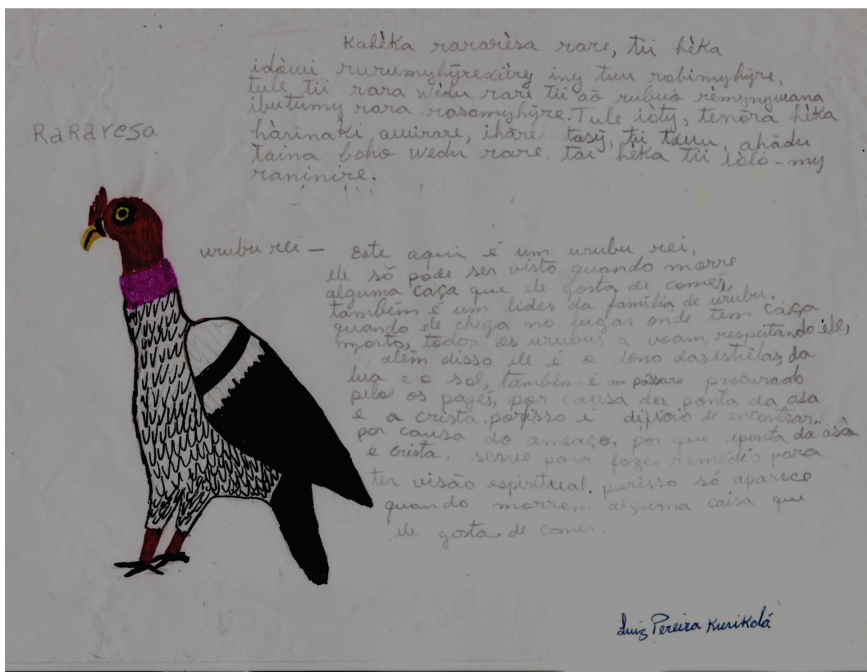 Kahèka rararèsa rare, tii hèka
idòwi rurumyhỹrexièry iny tuu robimyhỹre,
tule tii rara wèdu rare tii aõ rubuò rèmynymana
ibutumy rara rasomyhỹre. Tule ioty, tenõra hèka
hàrinaki awirare, ihàre tasỹ, tii tuu, ahãdu
taina boho wedu rare, tai hèka tii iòlò-my
raninire.
RaRaresa
urubu rei — Este aqui é um urubu rei,
ele só pode ser visto quando morre
alguma caça que ele gosta de comer,
também é um lider da família de urubu.
quando ele chega no lugar onde tem caça
morto, todos os urubus a voam, respeitando ele,
além disso ele é o dono das estrelas, da
lua e o sol, também é um pássaro procurado
pelo os pajés, por causa da ponta da asa
e a crista. porisso é difício de encontrar,
por causa do ameaço, por que a ponta da asa
e crista. serve para fazer remédio para
ter visão espiritual. porisso só aparece
quando morrem alguma caisa que
ele gosta de comer.
Luiz Pereira Kurikalá